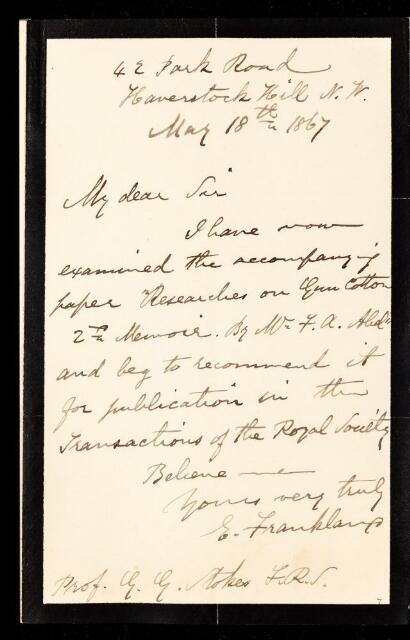 42 Park Road
Haverstock Hill N.W.
May 18th 1867
My dear Sir
I have now
examined the accompanying
paper "Researches on Gun Cotton
2nd Memoir. By Mr. F. A. Abel"
and beg to recommend it
for publication in the
Transactions of the Royal Society
Believe me
Yours very truly
E. Frankland
Prof. G. G. Stokes F.R.S.